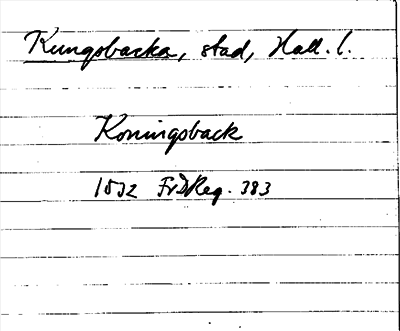 Kungsbacka, stad, Hall. l.
Koningsback
1532 FrDReg. 383